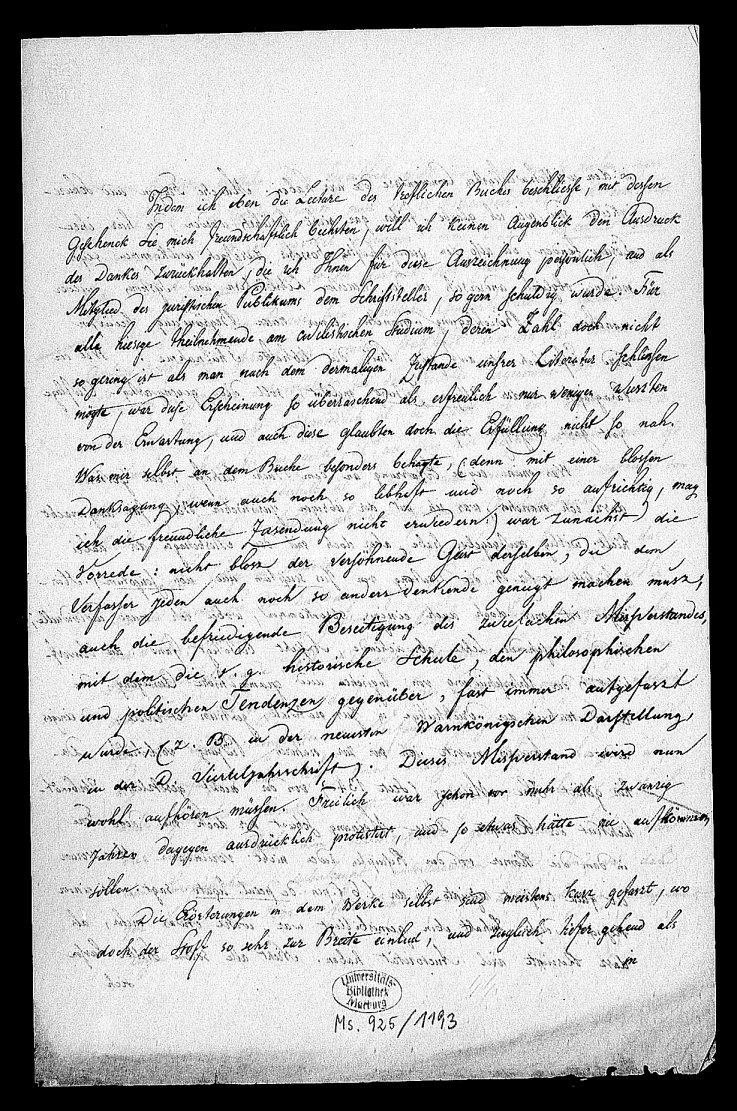 Indem ich eben die Lecture des trefflichen Buches beschliesse, mit dessen
Geschenck Sie mich freundschaftlich beehrten, will ich keinen Augenblick den Ausdruck
des Dankes zurückhalten, die ich Ihnen für diese Auszeichnung persönlich, und als
Mitglied des juristischen Publikums dem Schriftsteller, so gern schuldig wurde. Für
alle hiesige Theilnehmende am civilistischen Studium, deren Zahl doch nicht
so gering ist als man nach dem dermaligen Zustande unsrer Literatur schliessen
mögte, war diese Erscheinung so überraschend als erfreulich nur wenigen wussten
von der Erwartung, und auch diese glaubten doch die Erfüllung nicht so nah.
Was mir selbst an dem Buche besonders behagte, (denn mit einer blossen
Danksagung, wenn auch noch so lebhaft und noch so aufrichtig, mag
ich die freundliche Zusendung nicht erwiedern) war zunächst die
Vorrede: nicht blosz der versöhnende Geist derselben, die dem
Verfasser jeden auch noch so anders Denkende geneigt machen musz,
auch die befriedigende Beseitigung des zwiefachen Missverstandes,
mit dem die s. g. historische Schule, den philosophischen
und politischen Tendenzen gegenüber, fast immer aufgefaszt
wurde, (z. B. in der neusten Warnkönigschen Darstellung
in der D. Vierteljahrschrift). Dieses Missverstand wird nun
wohl aufhören müssen. Freilich war schon vor mehr als zwanzig
Jahren dagegen ausdrücklich protestirt, und so etwas hätte nie aufkommen
sollen.
Die Erörterungen in dem Werke selbst sind meistens kurz gefaszt, wo
doch der Stoff so sehr zur Breite einlud, und zugleich tiefer gehend als
in
Universitäts-
Bibliothek
Marburg
Ms. 925/1193